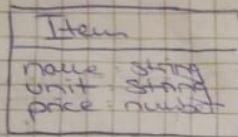 Item
name string
unit string
price number